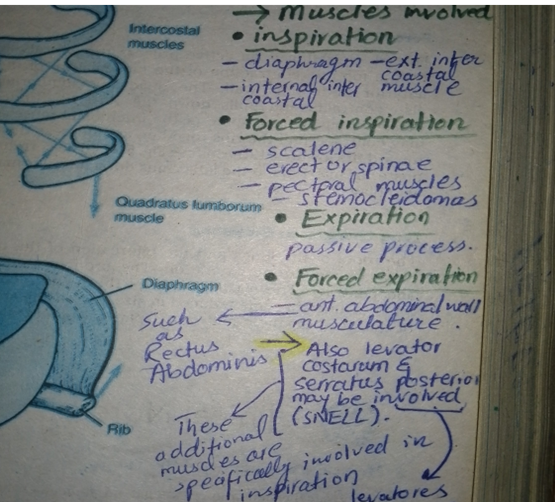 Intercostal
muscles
Quadratus lumborum
muscle
Diaphragm
Rib
→ Muscles involved
• inspiration
– diaphragm – ext. inter
coastal
– internal inter muscle
coastal
• Forced inspiration
– scalene
– erector spinae
– pectoral muscles
– stemocleidomas
• Expiration
passive process.
• Forced expiration
– ant. abdominal wall
musculature.
Such
as
Rectus
Abdominis
→ Also levator
costarum &
serratus posterior
may be involved
(SNELL).
These
additional
muscles are
specifically involved in
inspiration
levatores